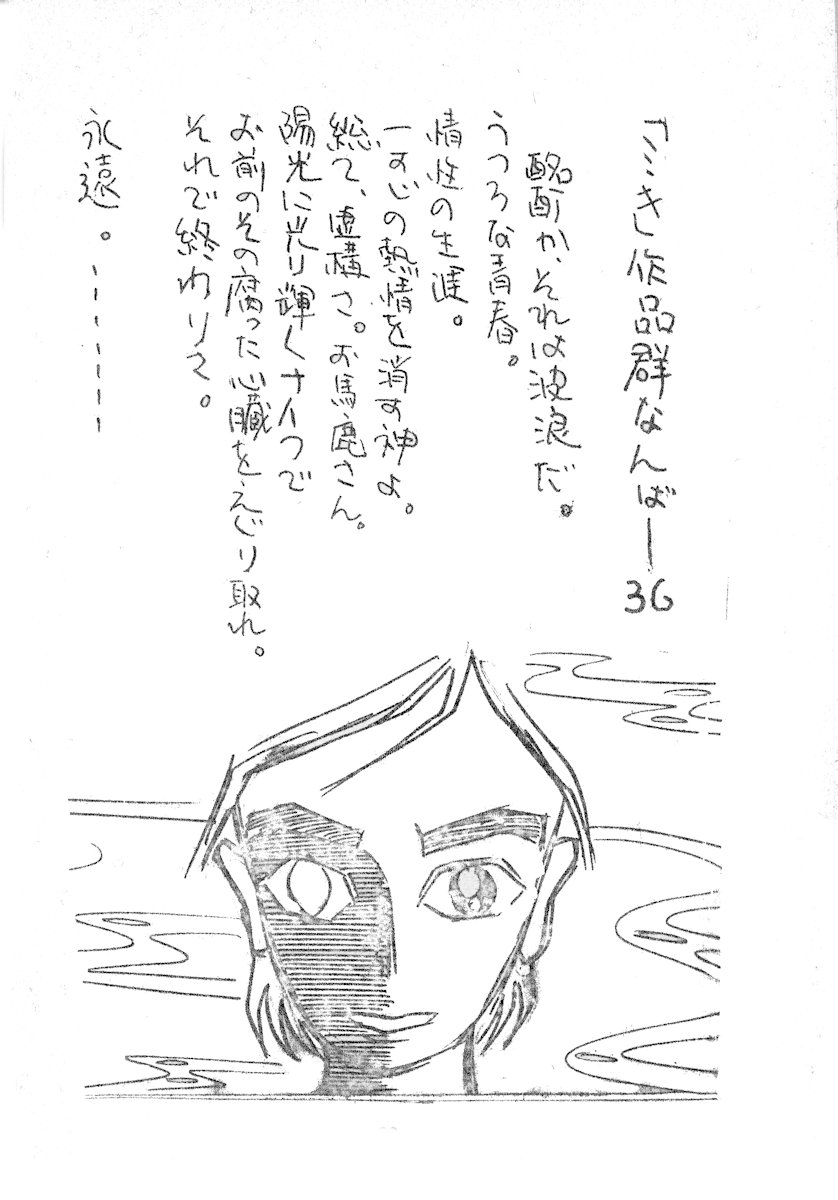 「ごき」作品群なんばー36
酩酊か、それは波浪だ。
うつろな青春。
惰性の生涯。
一すじの熱情を消す神よ。
総て、虚構さ。お馬鹿さん。
陽光に光り輝くナイフで
お前のその腐った心臓をえぐり取れ。
それで終わりさ。
永遠。ーーーーー